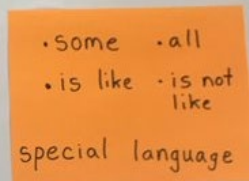 · some · all
· is like · is not
like
special language